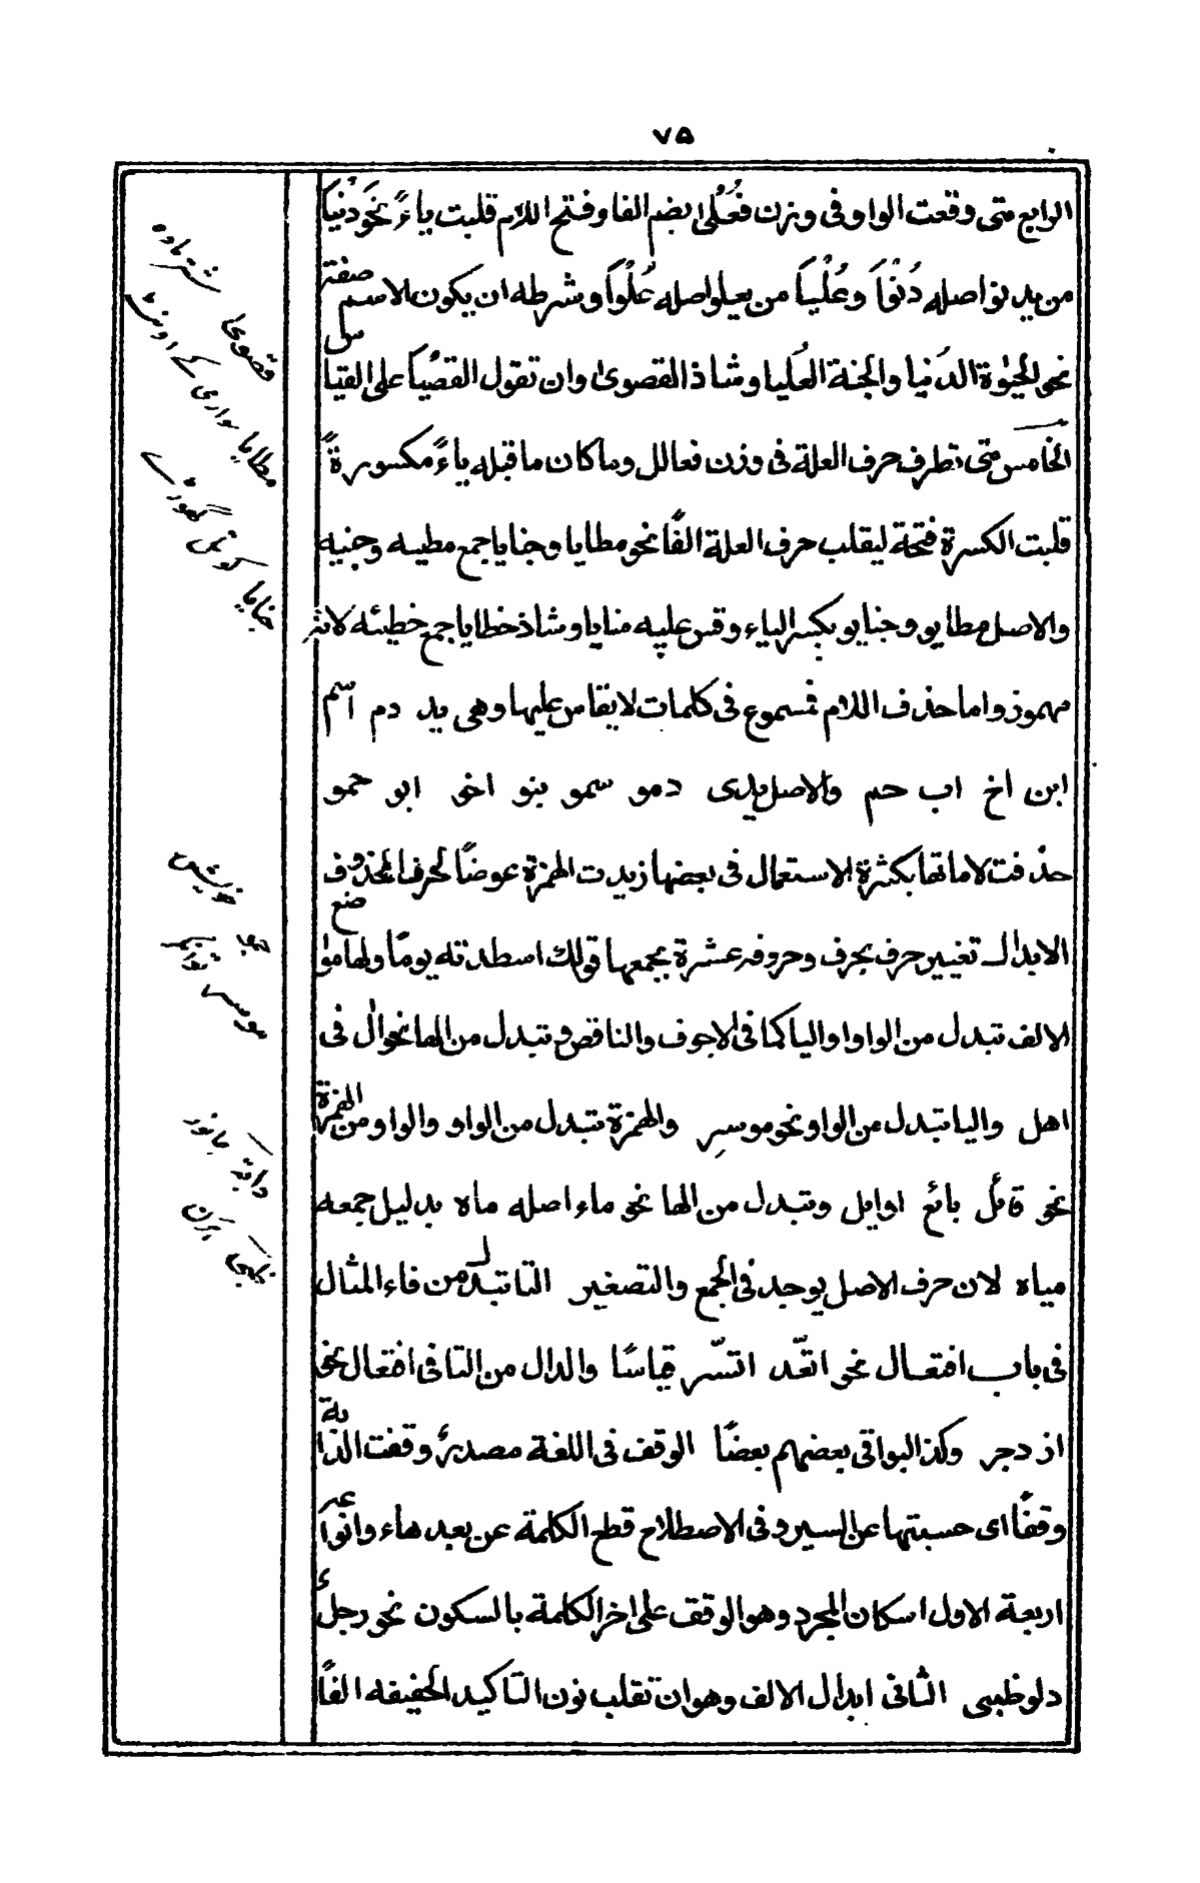 ٧٥
الرابع متى وقعت الواو فى وزن فُعْلىٰ بضم الفا وفتح اللام قلبت ياءً نحو دُنيا
من يدنو اصله دُنْوَا وعُلْيَا من يعلو اصله عُلْوَا وشرطه ان يكون الاسم صفة
نحو الحيٰوة الدُنيا والجنة العُليا وشاذ القصوىٰ وان تقول القصُيا على القياس
الخامس متى تطرف حرف العلة فى وزن فعالل وما كان ما قبله ياءً مكسورةً
قلبت الكسرة فتحة ليقلب حرف العلة الفًا نحو مطايا وجنايا جمع مطيه وجنيه
والاصل مطايو وجنايو بكسر الياء وقس عليه منايا وشاذ خطايا جمع خطيئه لانه
مهموز واما حذف اللام فسموع فى كلمات لا يقاس عليها وهى يد دم اسم
ابن اخ اب حم والاصل يدى دمو سمو بنو اخو ابو حمو
حذفت لاماتها بكثرة الاستعمال فى بعضها زيدت الهمزة عوضًا لحرف المحذوف
الابدال تغيير حرف بحرف وحروفه عشرة يجمعها قولك اسطدته يومًا ولها مواضع
الالف تبدل من الواو او اليا كما فى الاجوف والناقص و تبدل من الها نحو اٰل فى
اهل واليا تبدل من الواو نحو موسر والهمزة تبدل من الواو والواو من الهمزة
نحو قائل بائع اوايل وتبدل من الها نحو ماء اصله ماه بدليل جمعه
مياه لان حرف الاصل يوجد فى الجمع والتصغير التا تبدل من فاء المثال
فى باب افتعال نحو اتّعد اتّسر قياسًا والدال من التا فى افتعال نحو
ازدجر وكذ البواقى بعضهم بعضًا الوقف فى اللغة مصدرٌ وقفت الدابة
وقفًا اى حسبتها عن السير وفى الاصطلاح قطع الكلمة عن بعد هاء وانواعه
اربعة الاول اسكان المجرد وهو الوقف على اخر الكلمة بالسكون نحو رجلْ
دلو ظبى الثانى ابدال الالف وهو ان تقلب نون التاكيد الخفيفه الفًا
قصوىٰ شتر ماده
مطايا سوارى كے اونٹ
جنايا
حمو خويش
موسر تونگر
دابة جانور
ظبى ہرن